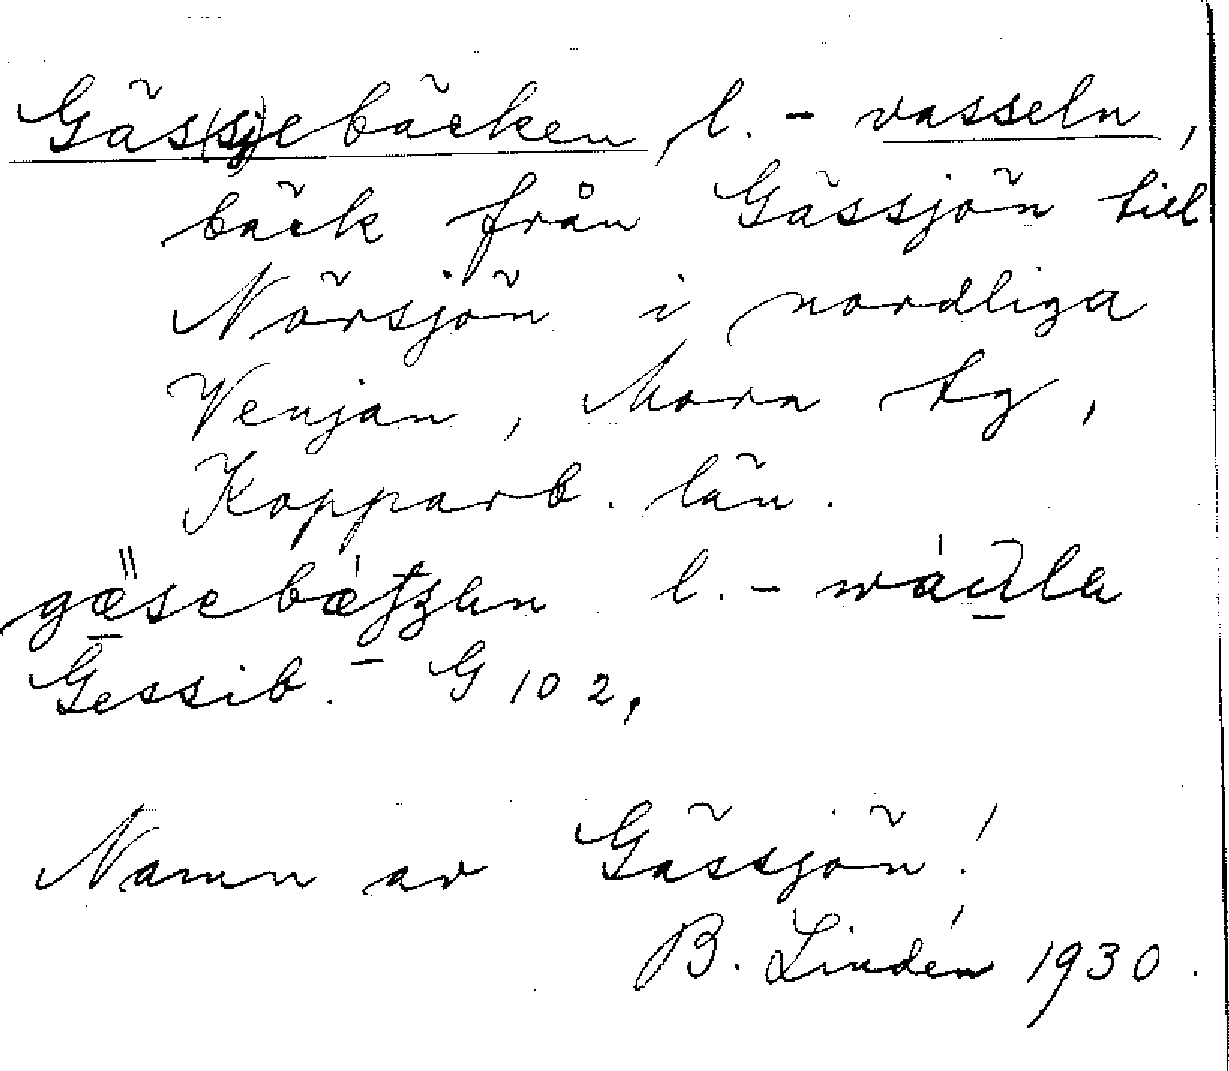 Gäs(s)ebäcken, l. - vasseln,
bäck från Gässjön till
Nörsjön i nordliga
Venjan, Mora tg,
Kopparb. län.
l. -
Gessib. - G 102,
Namn av Gässjön!
B. Lindén 1930.